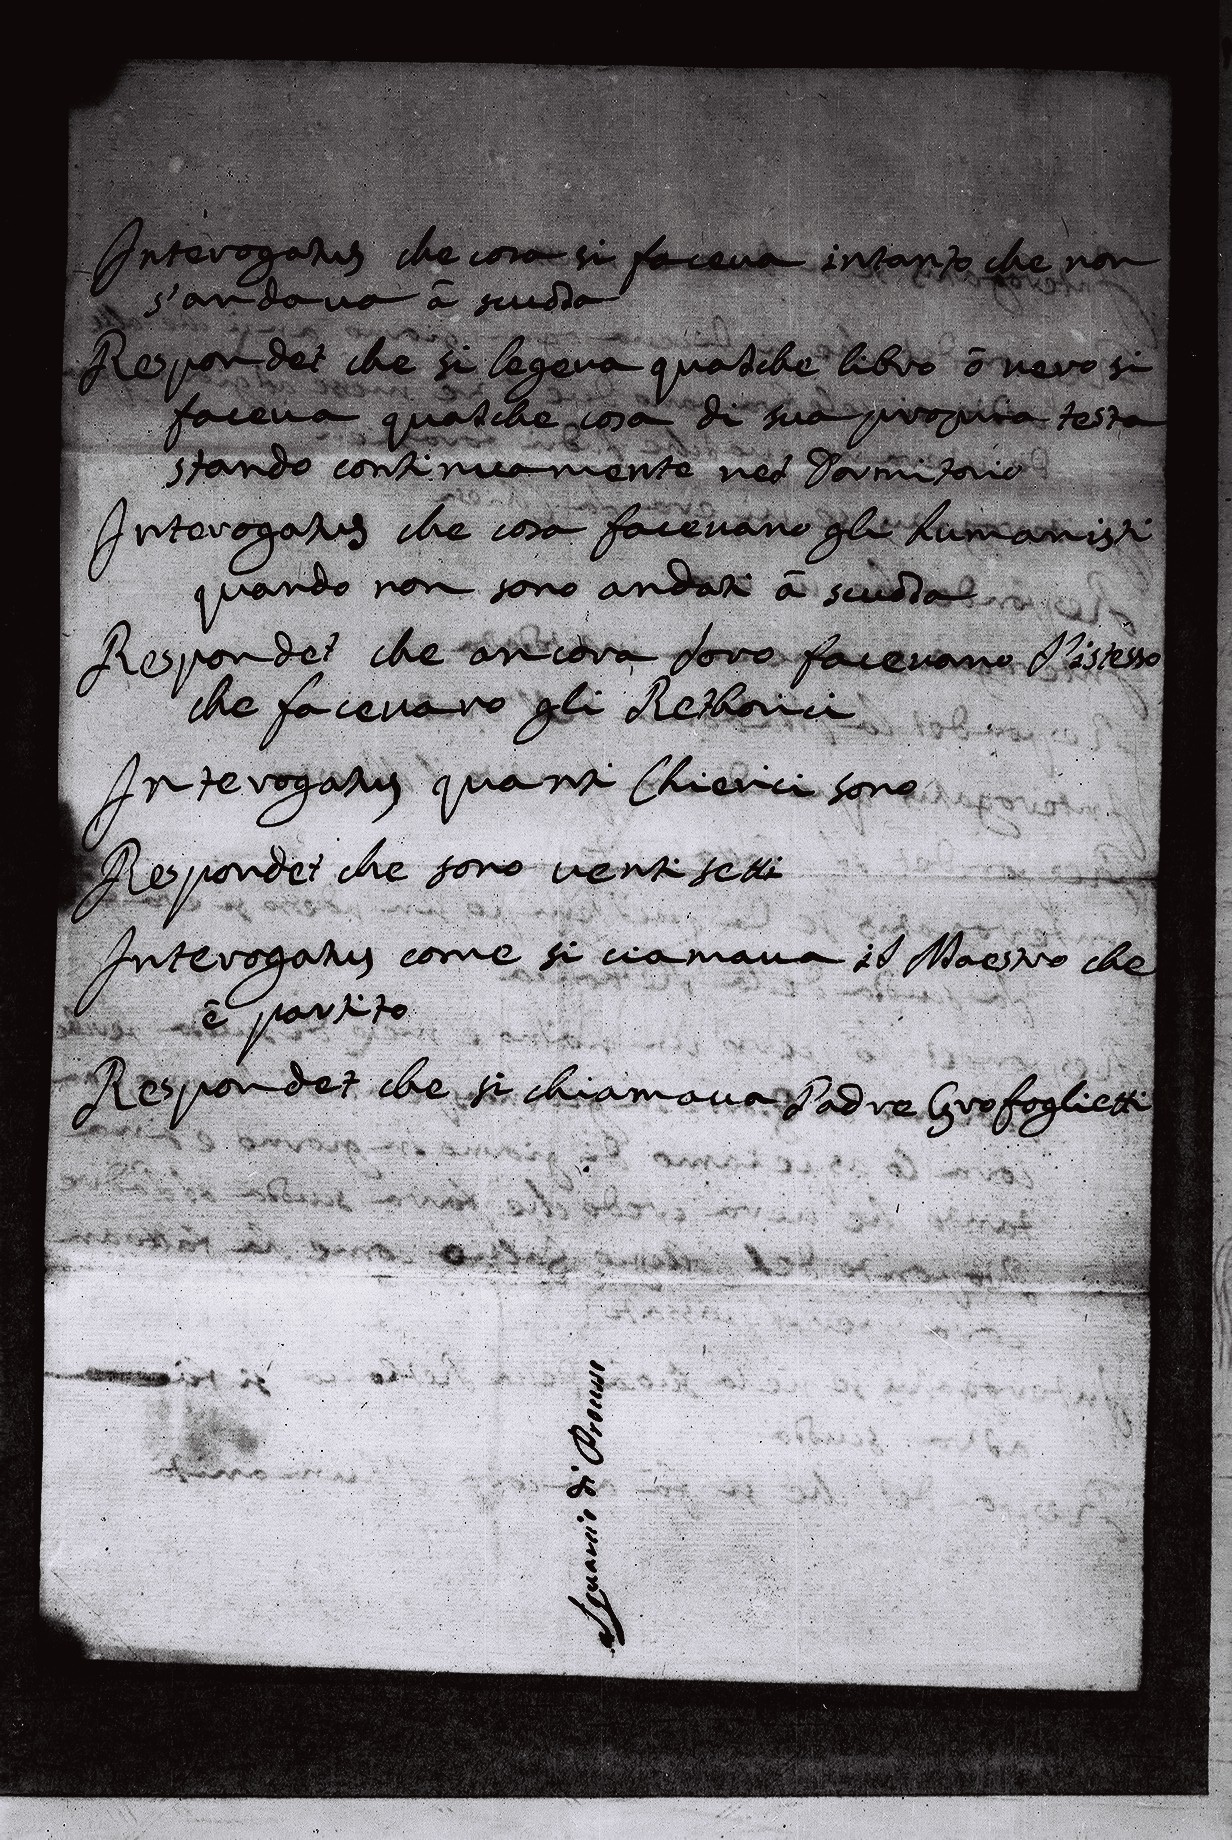 Interogatus che cosa si faceua intanto che non
s'andaua à scuola
Respondet che si legeua qualche libro ò uero si
faceua qualche cosa di sua propria testa
stando continuamente nel Dormitorio
Interogatus che cosa faceuano gli humanisti
quando non sono andati à scuola
Respondet che ancora loro faceuano l'istesso
che faceuano gli Rethorici
Interogatus quanti Chierici sono
Respondet che sono uenti setti
Interogatus come si ciamaua il Maestro che
è partito
Respondet che si chiamaua Padre Grofoglietti
di